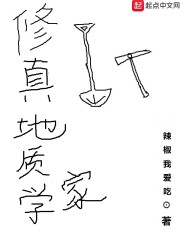 起点中文网
修真地质学家
辣椒我爱吃⊙著